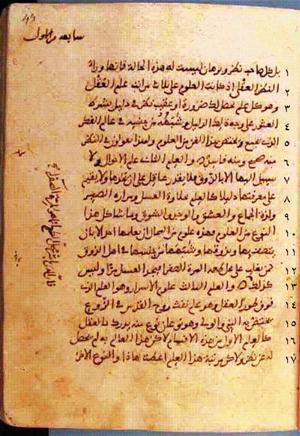 49
بل كل صاحب نظر وبرهان ليست له هذه الحالة فانها وراء ١
النظر العقلي اذ كانت العلوم على ثلاث مراتب علم العقل ٢
وهو كل علم يحصل لك ضرورة او عقيب نظر في دليل بشرط ٣
العثور على وجه ذلك الدليل وشبهه من جنسه في عالم الفكر ٤
الذي يجمع ويختص بهذا الفن من العلوم ولهذا يقولون في النظر ٥
منه صحيح ومنه فاسد والعلم الثاني علم الاحوال ولا ٦
سبيل اليها الا بالذوق فلا يقدر عاقل على ان يحدها ولا يقيم ٧
على معرفتها دليلا كالعلم بحلاوة العسل ومرارة الصبر ٨
ولذة الجماع والعشق والوجد والشوق وما شاكل هذا ٩
النوع من العلوم فهذه علوم من المحال ان يعلمها احد الا بان ١٠
يتصف بها ويذوقها وشبهها من جنسها في اهل الذوق ١١
كمن يغلب على محل طعمه المرة الصفراء فيجد العسل مرا وليس ١٢
كذلك والعلم الثالث علوم الاسرار وهو العلم الذي ١٣
فوق طور العقل وهو علم نفث روح القدس في الروع ١٤
يختص به النبي والولي وهو نوعان نوع منه يدرك بالعقل ١٥
كالعلم الاول من هذه الاقسام لكن هذا العالم به لم يحصل ١٦
له عن نظر ولكن مرتبة هذا العلم اعطت هذا والنوع الاخر ١٧